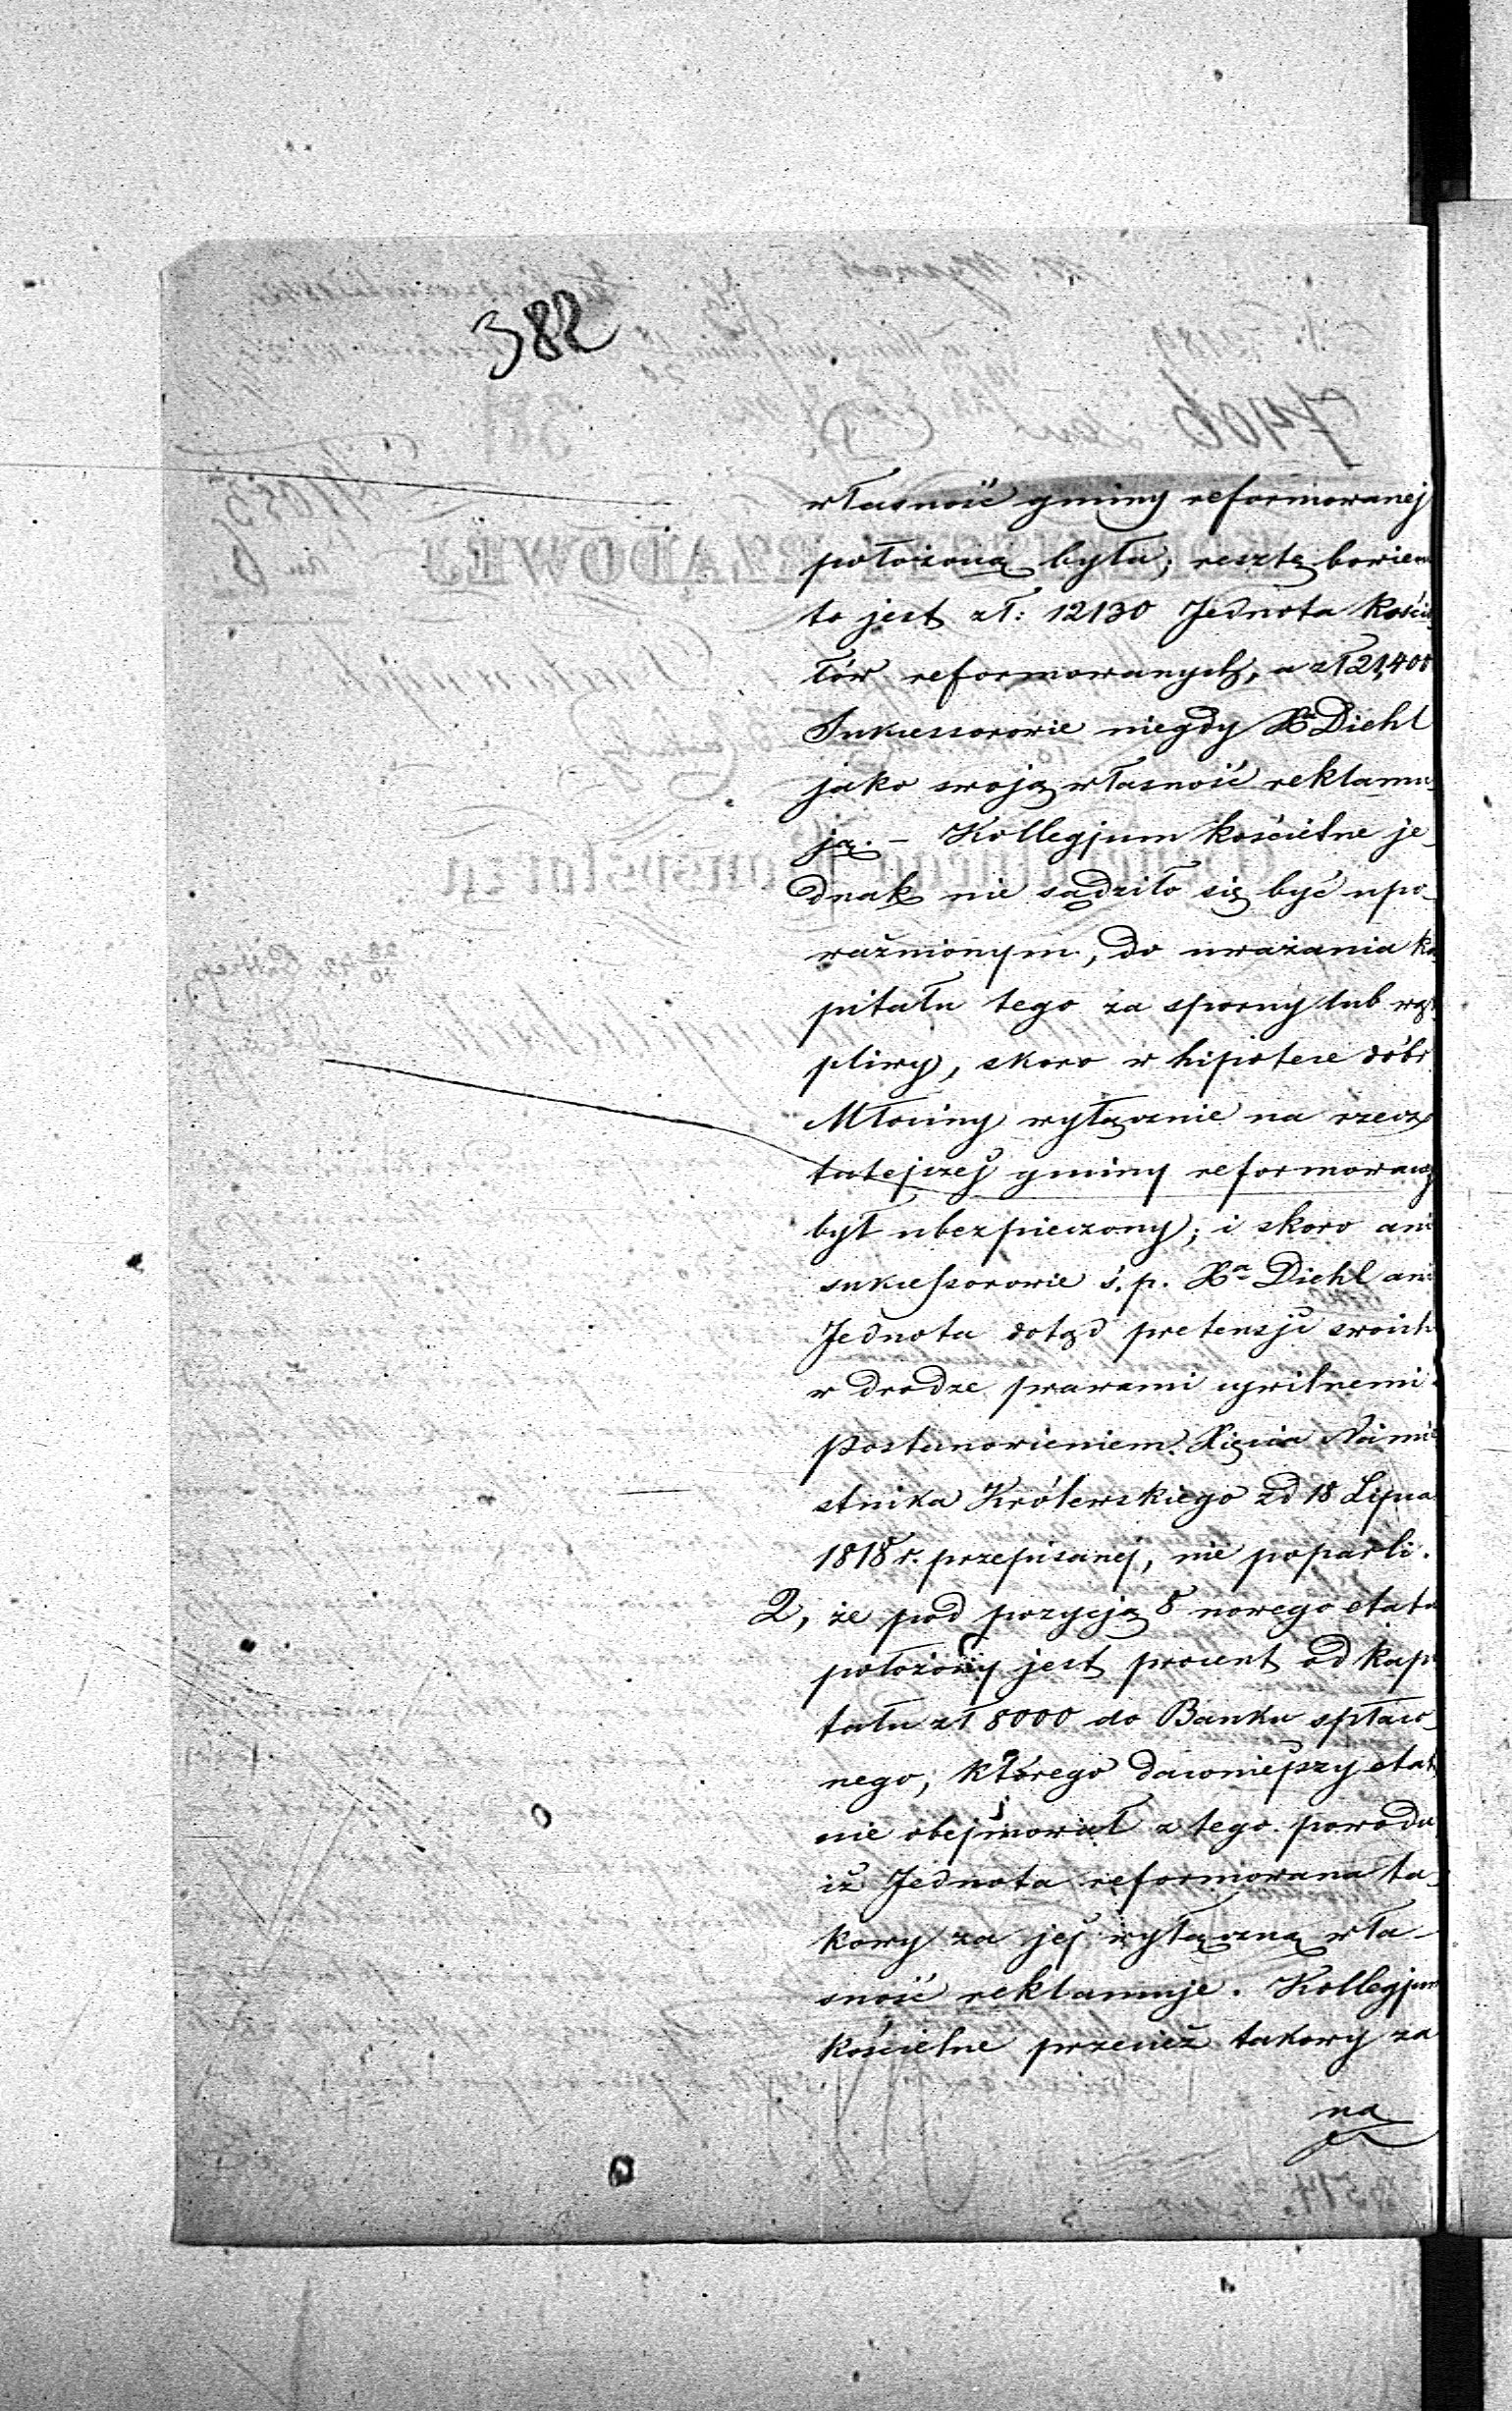 382
własność gminy reformowanej
położoną była; resztę bowiem
to jest zł: 12130 Jednota Kości
łów reformowanych, a zł 21,400
Sukcessorowie niegdy Xa Diehl
jako swoją własność reklamu-
ją. – Kollegjum kościelne je-
dnak nie sądziło się być upo-
ważnionym, do uważania ka
pitału tego za sporny lub wąt
pliwy, skoro w hipotece dóbr
Młociny wyłącznie na rzecz
tutejszej gminy reformowanej
był ubezpieczony; i skoro ani
sukcessorowie ś. p. Xa Diehl ani
Jednota dotąd pretensji swoich
w drodze prawami cywilnemi i
Postanowieniem Xięcia Namie
stnika Królewskiego z d 18 Lipca
1818 r. przepisanej, nie poparli.
2, że pod pozycją 8 nowego etatu
położony jest procent od kapi
tału zł 8000 do Banku spłaco-
nego, którego dawniejszy etat
nie obejmował z tego powodu
iż Jednota reformowana ta-
kowy za jej wyłączną wła-
sność reklamuje. Kollegjum
kościelne przecież takowy za
na